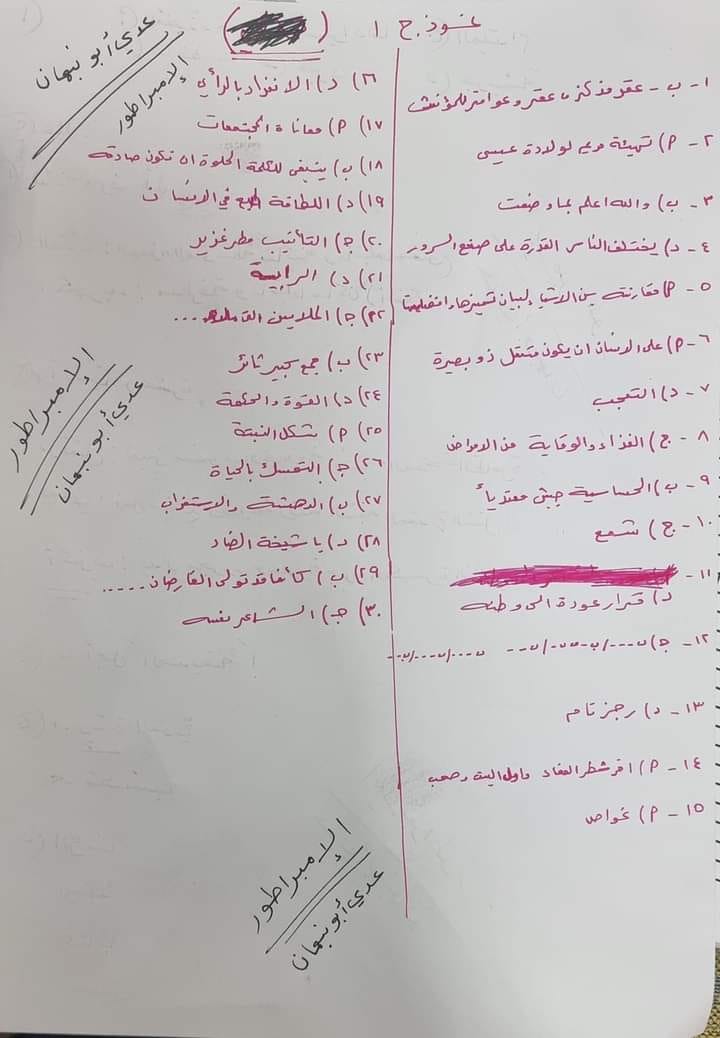 نموذج ١
١- ب- عقر مذكر، عقر وعواقر للمؤنث
٢- P) تهيئة مريم لولادة عيسى
٣- ب) والله اعلم بما وضعت
٤- د) يختلف الناس القدرة على صنع السرور
٥- P) مقارنة بين الاشيا لبيان تميزها وافضليتها
٦- P) على الانسان ان يكون متنقل ذو بصيرة
٧- د) التعجب
٨- ج) الغذاء والوقاية من الامراض
٩- ب) الحساسية جيش معتدياً
١٠- ج) شمع
١١-
د) قرار عودة الى وطنه
١٢- ج)
١٣- د) رجز تام
١٤- P) اخر شطر العقاد واول البيت وصعب
١٥- P) غواص
٢٦) د) الانفراد بالرأي
١٧) P) معاناة المجتمعات
١٨) ب) ينبغي للكلمة الحلوة ان تكون صادقة
١٩) د) اللطافة طبع في الانسان
٢٠) ج) التأنيب مطر غزير
٢١) د) الرابية
٢٢) ج) الملايين ....
٢٣) ب) جمع كبير ثائر
٢٤) د) القوة والحكمة
٢٥) P) شكل النبتة
٢٦) ج) التمسك بالحياة
٢٧) ب) الدهشة والاستغراب
٢٨) د) يا شيخة الضاد
٢٩) ب) كأنما قد تولى القارضان.....
٣٠) ج) الشاعر نفسه
عدي أبو نبهان
الإمبراطور
الإمبراطور
عدي أبو نبهان
الإمبراطور
عدي أبو نبهان